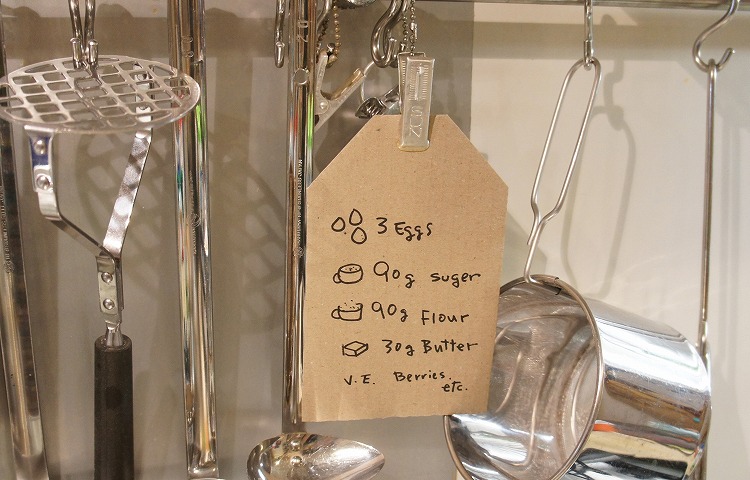 3 Eggs
90g suger
90g Flour
30g Butter
V.E. Berries.
etc.